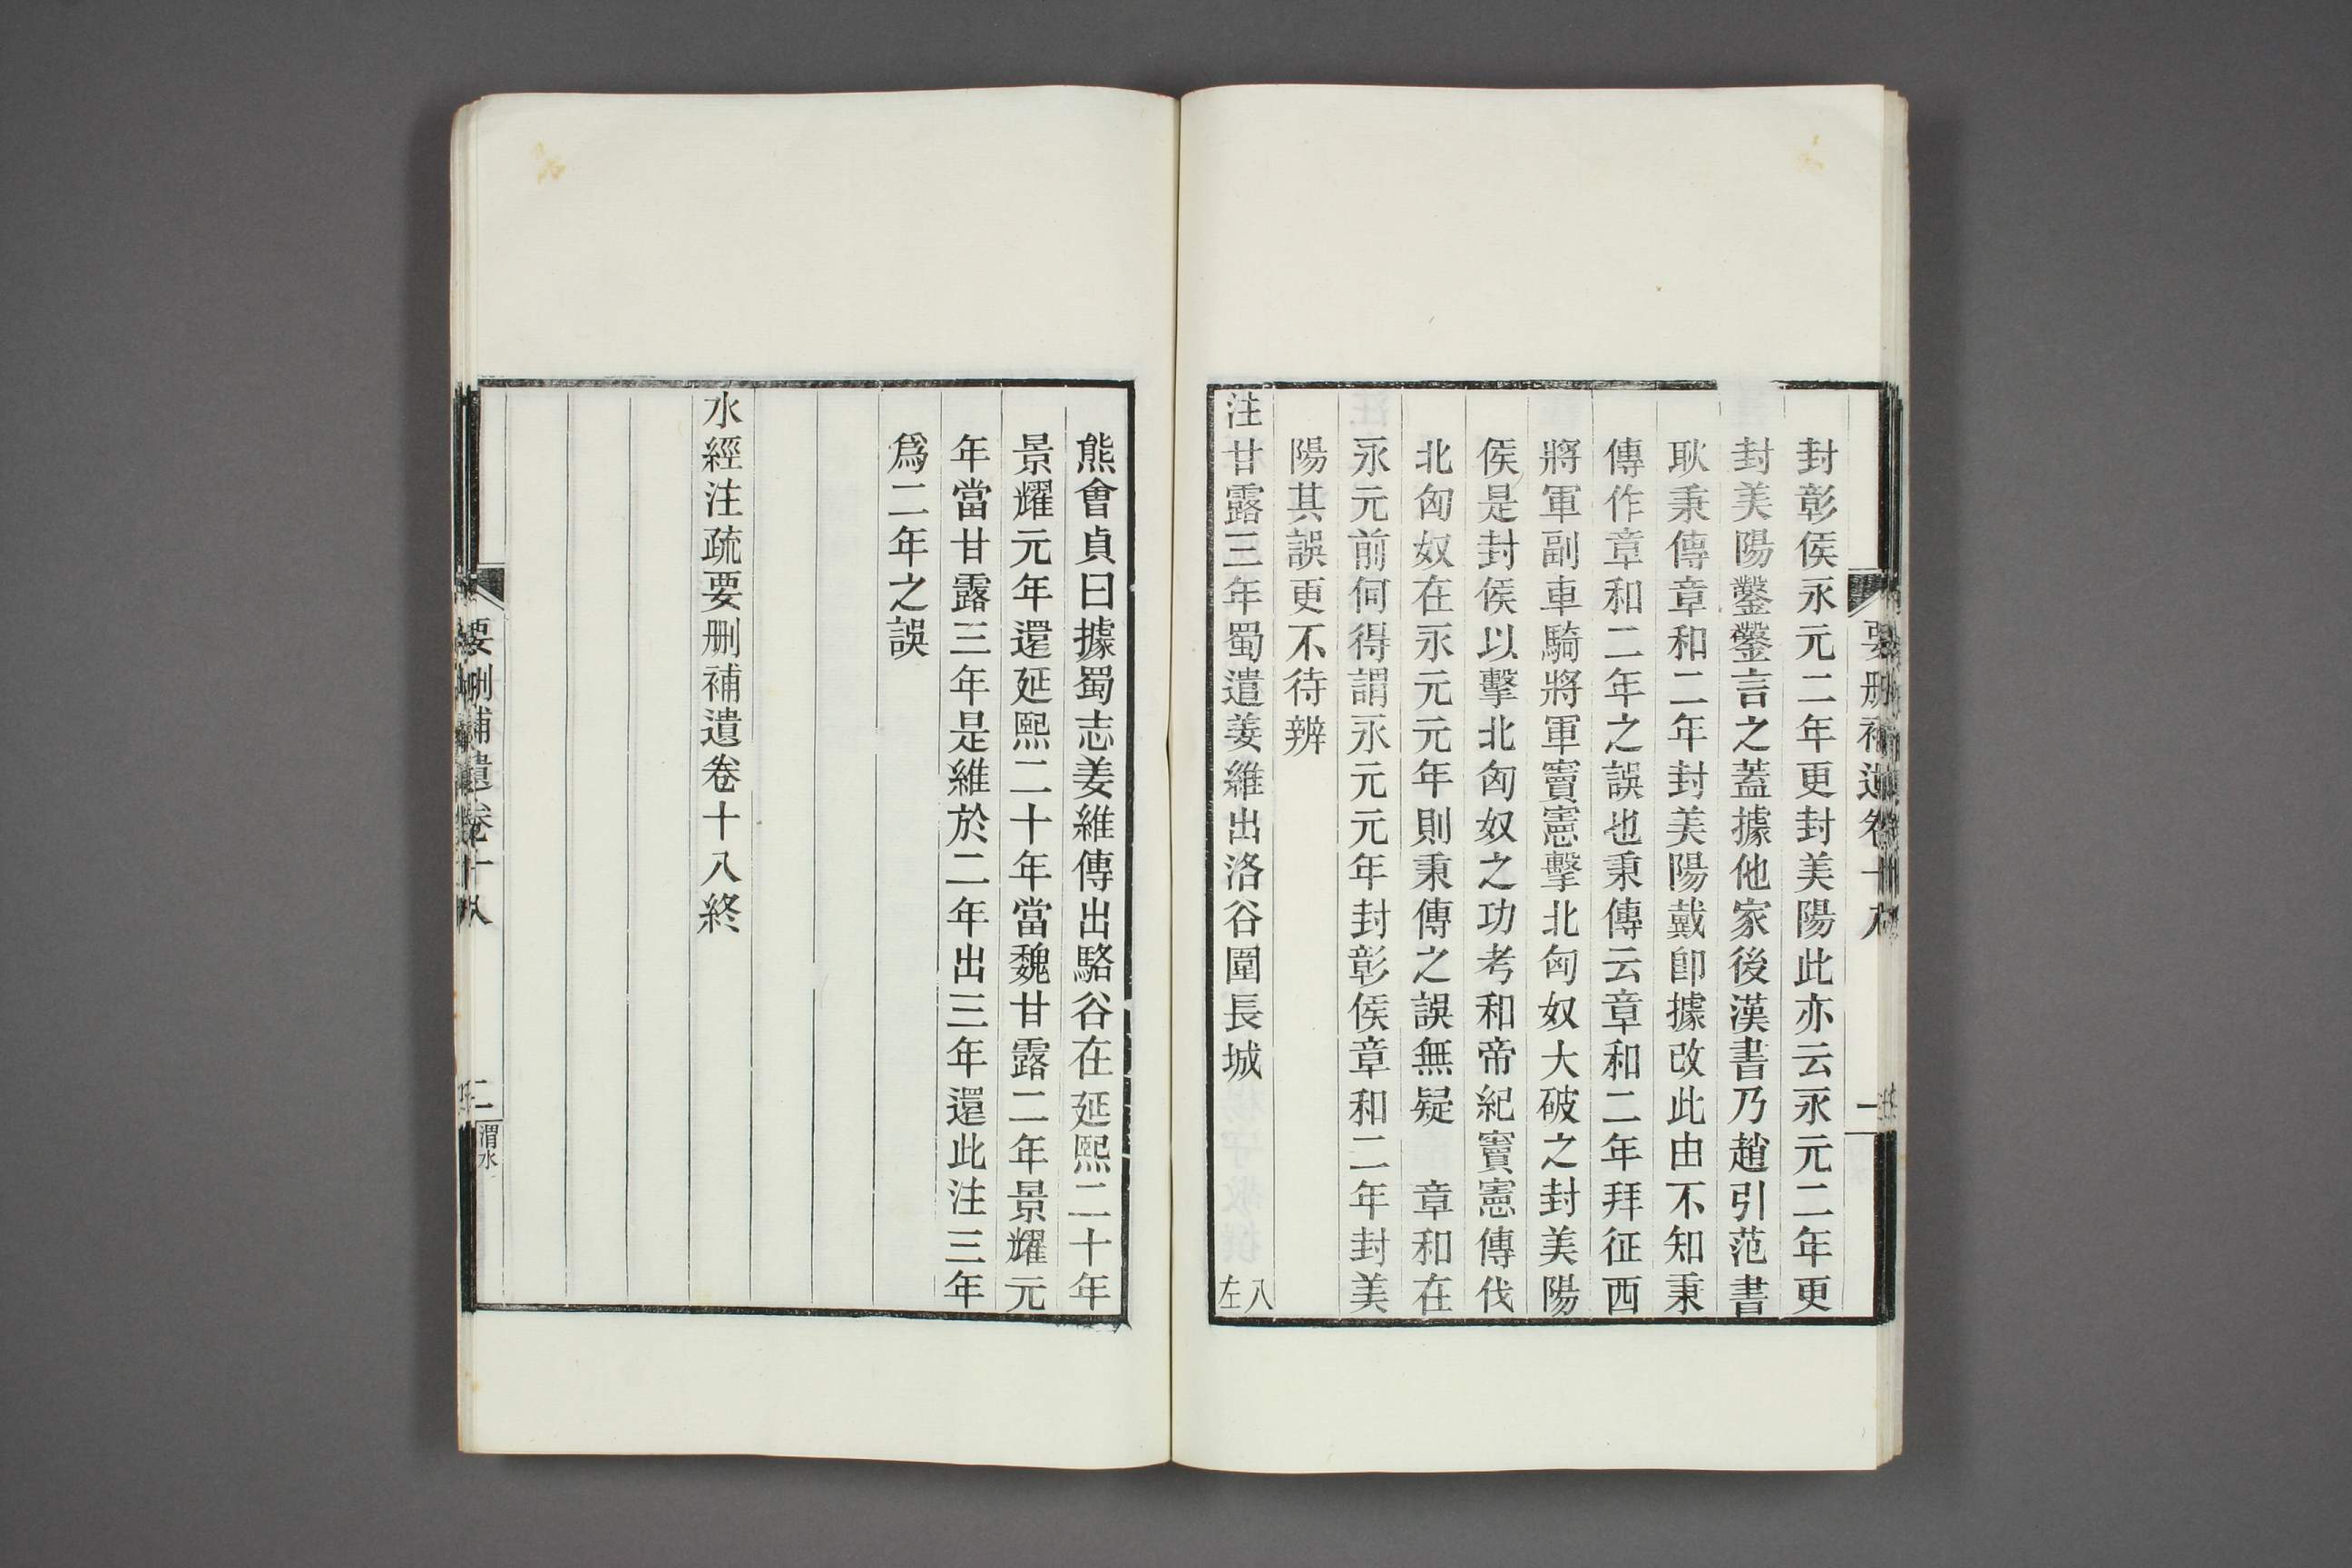 封彰侯永元二年更封美陽此亦云永元二年更
封美陽鑿鑿言之蓋據他家後漢書乃趙引范書
耿秉傳章和二年封美陽戴卽據改此由不知秉
傳作章和二年之誤也秉傳云章和二年拜征西
將軍副車騎將軍竇憲擊北匈奴大破之封美陽
侯是封侯以擊北匈奴之功考和帝紀竇憲傳伐
北匈奴在永元元年則秉傳之誤無疑　章和在
永元前何得謂永元元年封彰侯章和二年封美
陽其誤更不待辨
注甘露三年蜀遣姜維出洛谷圍長城
八左
熊會貞曰據蜀志姜維傳出駱谷在延熙二十年
景耀元年還延熙二十年當魏甘露二年景耀元
年當甘露三年是維於二年出三年還此注三年
爲二年之誤
水經注疏要刪補遺卷十八終
要刪補遺卷十八
二
渭水